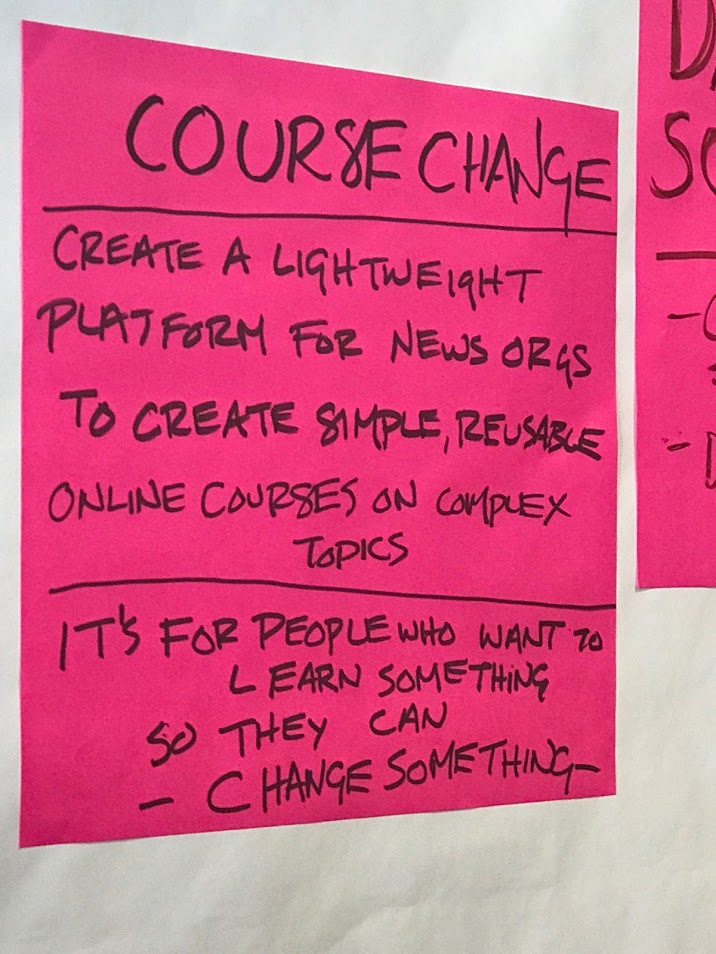 COURSE CHANGE
CREATE A LIGHTWEIGHT
PLATFORM FOR NEWS ORGS
TO CREATE SIMPLE, REUSABLE
ONLINE COURSES ON COMPLEX
TOPICS
IT'S FOR PEOPLE WHO WANT TO
LEARN SOMETHING
SO THEY CAN
- CHANGE SOMETHING -